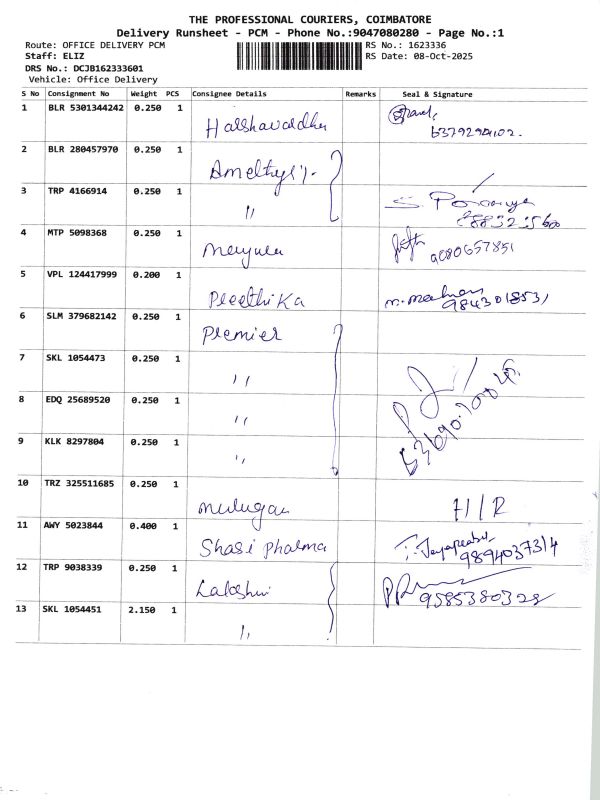 THE PROFESSIONAL COURIERS, COIMBATORE
Delivery Runsheet - PCM - Phone No.:9047080280 - Page No.:1
Route: OFFICE DELIVERY PCM RS No.: 1623336
Staff: ELIZ RS Date: 08-Oct-2025
DRS No.: DCJB162333601
Vehicle: Office Delivery
S No Consignment No Weight PCS Consignee Details Remarks Seal & Signature
1 BLR 5301344242 0.250 1
6379294102.
2 BLR 280457970 0.250 1
3 TRP 4166914 0.250 1 "
4 MTP 5098368 0.250 1 9080657851
5 VPL 124417999 0.200 1 Preethika
9843018531
6 SLM 379682142 0.250 1 Premier
7 SKL 1054473 0.250 1 "
8 EDQ 25689520 0.250 1 "
9 KLK 8297804 0.250 1 "
10 TRZ 325511685 0.250 1 Murugan H/R
11 AWY 5023844 0.400 1 Shasi Pharma
9894037314
12 TRP 9038339 0.250 1 Lakshmi
9585380328
13 SKL 1054451 2.150 1 "